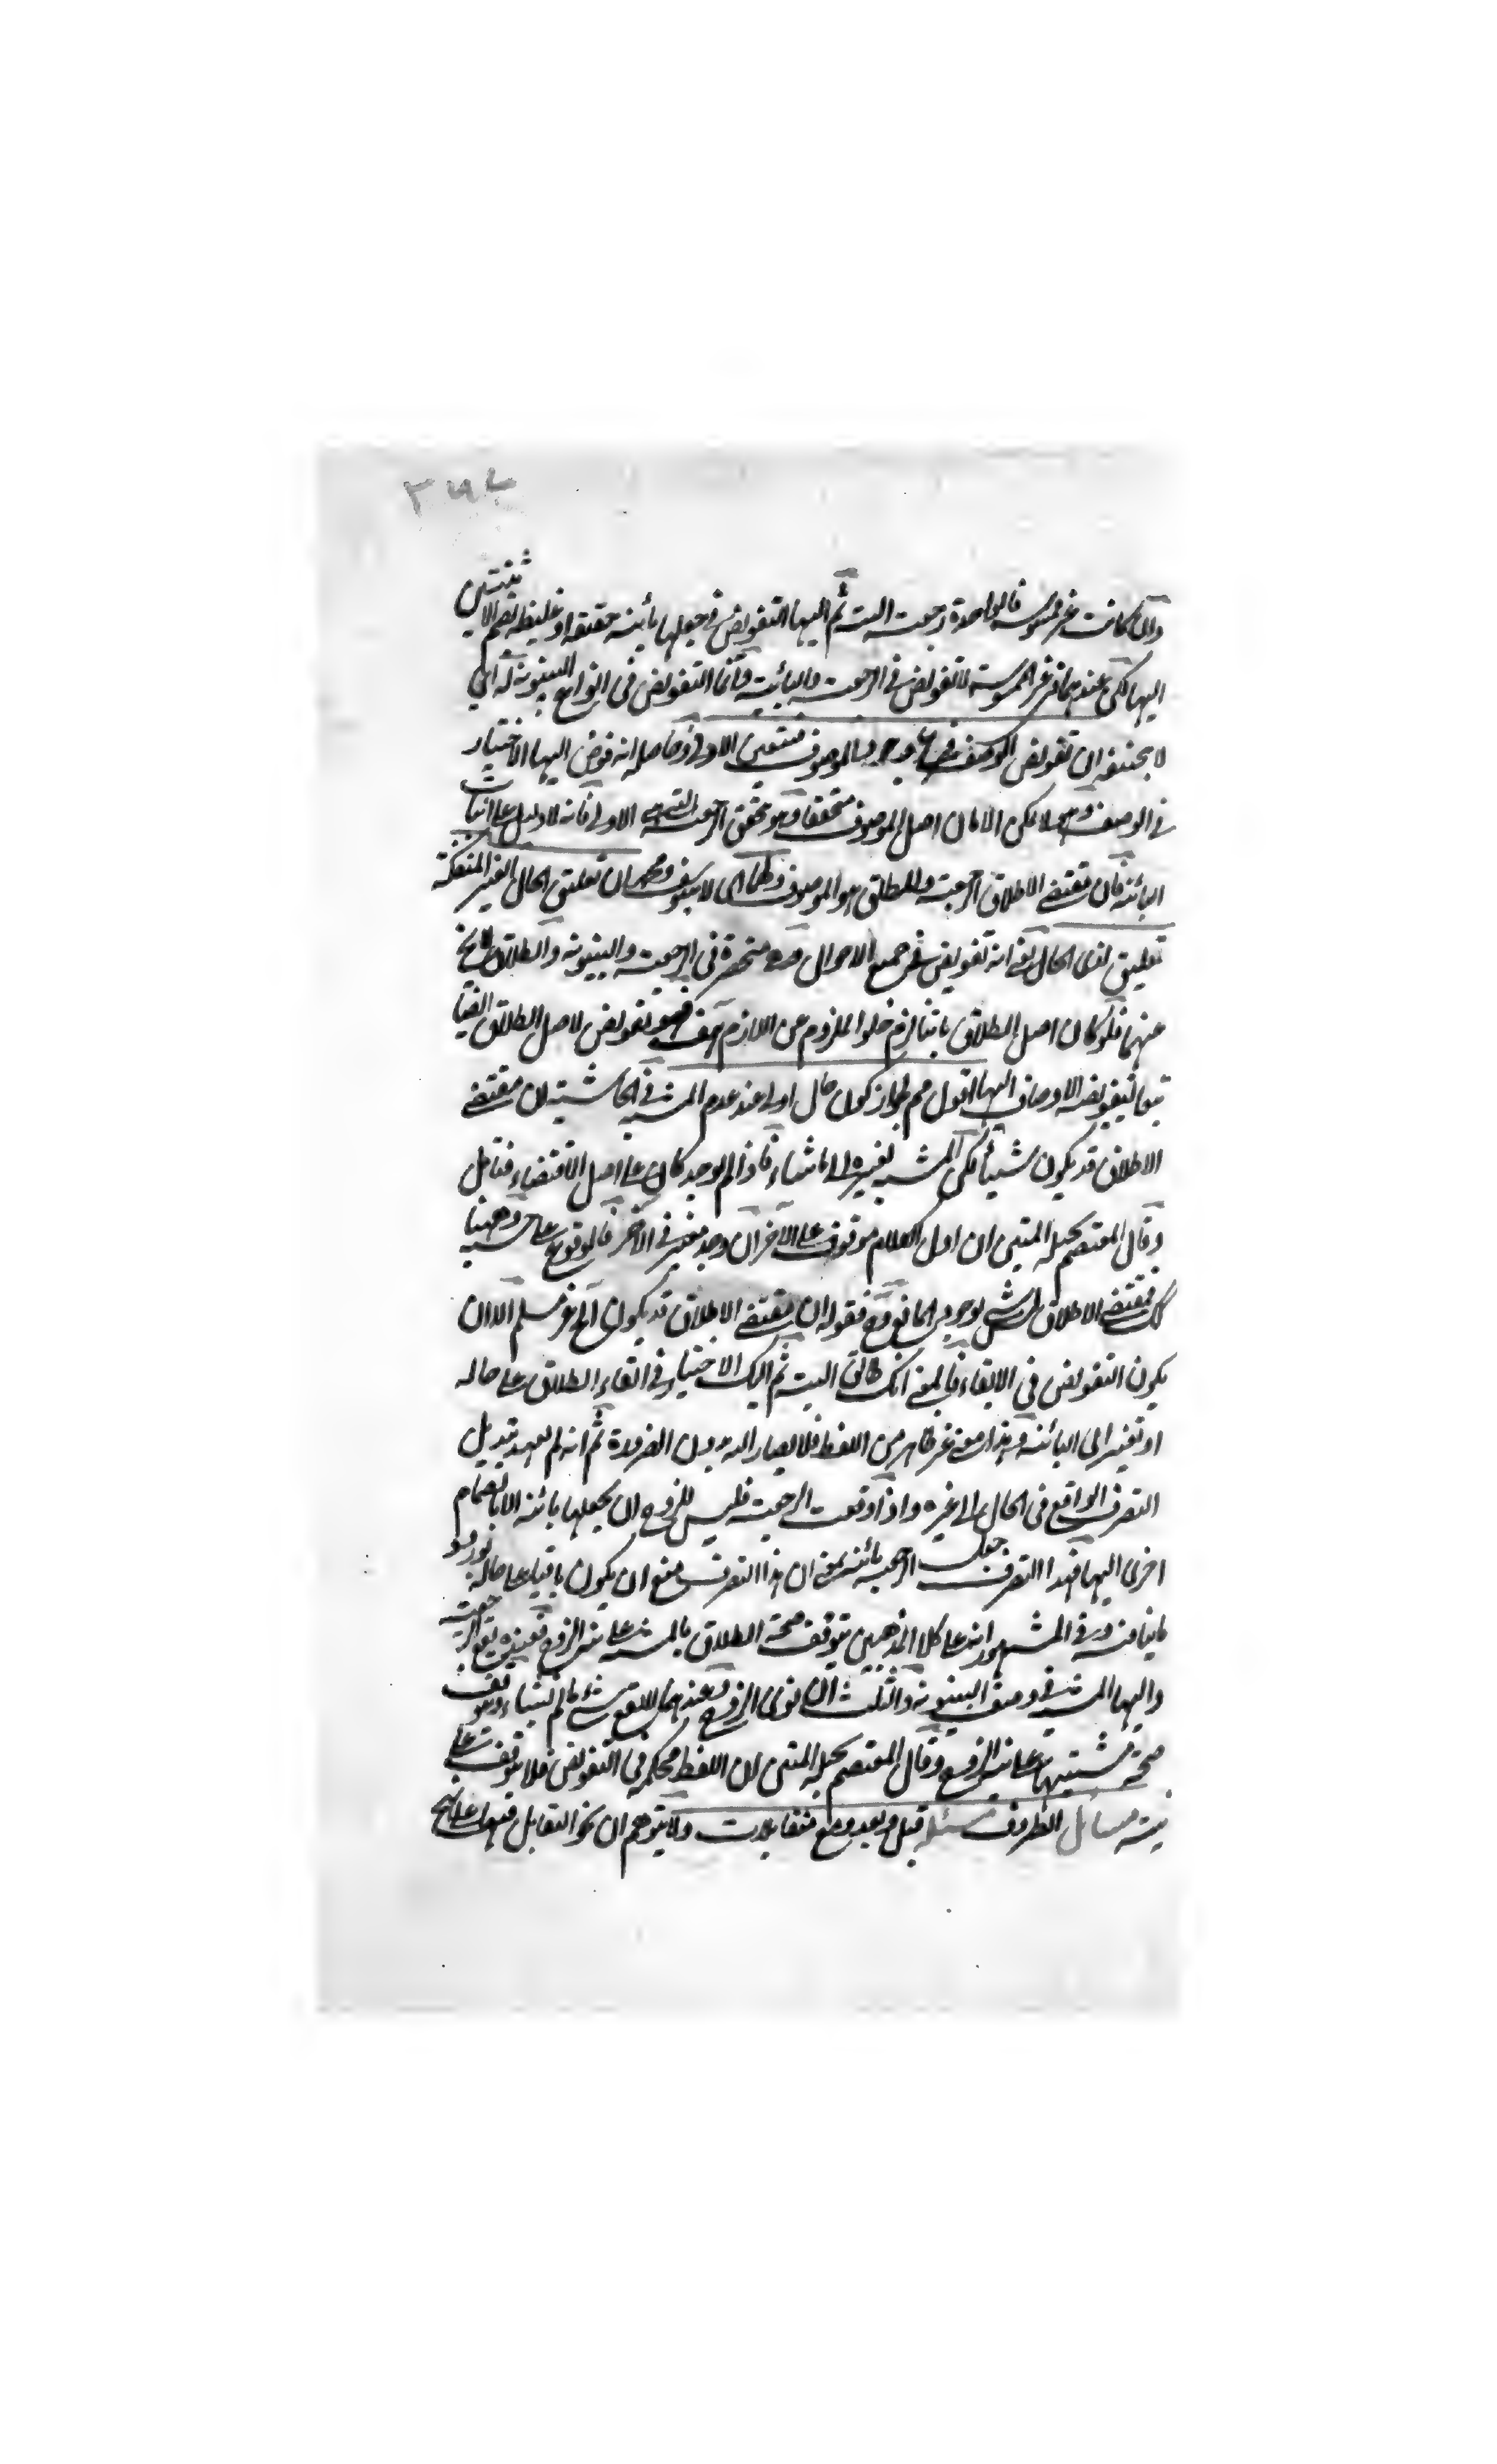 وان كانت غير ممسوسة فالواحدة رجعت البتة ثم اليها التفويض في جعلها بائنة حقيقة او غليظة بضم الاثنتين
اليها لكن عندهما في غير الممسوسة لا تفويض في الرجعية والبائنة وانما التفويض في انواع البينونة له اي
لابي حنيفة ان تفويض الوصف وجود الموصوف فيتعين الاولى وحاصله انه فوض اليها الاختيار
في الوصف لا يكون الا بان اصل الموصوف متحققا وهو تحقق الرجعية الاولى فانه لا دليل على اثبات
البائنة فان مقتضى الاطلاق الرجعية والمطلق هو الموصوف ولهما اي لابي يوسف ومحمد ان تعليق الحال الغير المنفكة
تعليق لذي الحال يعني انه تفويض في جميع الاحوال منحصرة في الرجعية والبينونة والطلاق لا يخ
عنهما فلو كان اصل الطلاق ثابتا لزم خلو الملزوم عن اللازم هف فهو تفويض لاصل الطلاق ايضا
تبعا لتفويضه الاوصاف اليها اقول مم لجواز كون حال اولى عند عدم المشية في الحاشية لان مقتضى
الاطلاق قد يكون شيئا لكن المشية تغيره الى ما شاء فاذا لم يوجد كان على اصل الاقتضاء فتامل
وقال المعتصم بحبله المتين ان اول الكلام موقوف على الآخر ان وجد مغير في الآخر فالوقوع على حسبه وههنا
مقتضى الاطلاق بوجود المانع فقوله ان مقتضى الاطلاق قد يكون الخ غير مسلم الا ان
يكون التفويض في الابقاء فالمعنى انك طالق البتة ثم اليك الاختيار في ابقاء الطلاق على حاله
او تغيير الى البائنة وهذا معنى غير ظاهر من اللفظ فلا يصار اليه بدون الضرورة ثم انه لم يعهد تبديل
التصرف الواقع في الحال الى غيره واذا وقعت الرجعية فليس للزوج ان يجعلها بائنة الا بانضمام
اخرى اليها فهذا التصرف جعل الرجعية بائنة بمعنى ان هذا التصرف منع ان يكون باقيا على حاله
ما ينافيه وفي المشهور انه على كلا المذهبين يتوقف صحة الطلاق بالمشية على نية الزوج فعنده يقع الرجعية
واليها المشية في وصف البينونة والثلث ان نوى الزوج وعندهما لا يقع شيء ما لم تشاء ويتوقف
صحة مشيتها على نية الزوج وقال المعتصم بحبله المتين لان اللفظ محكم في التفويض فلا يتوقف على
نية مسائل الظروف مسئلة قبل وبعد ومع متقابلات ولا يتوهم ان نحو التقابل